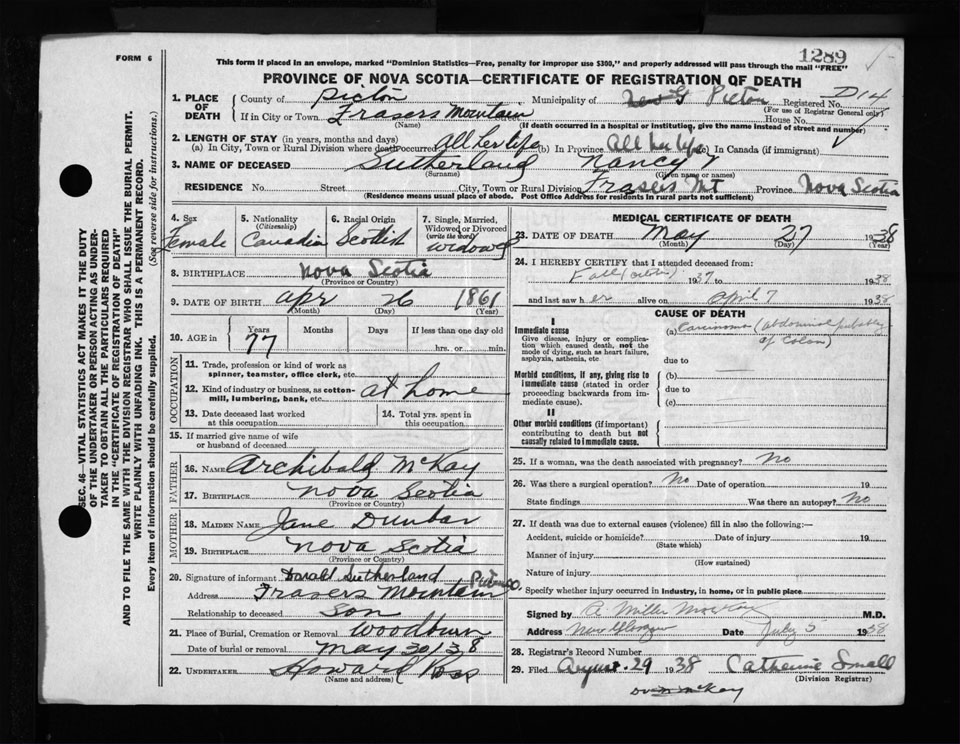 FORM 6
1289
This form if placed in an envelope, marked "Dominion Statistics—Free, penalty for improper use $300," and properly addressed will pass through the mail "FREE"
PROVINCE OF NOVA SCOTIA—CERTIFICATE OF REGISTRATION OF DEATH
1. PLACE OF DEATH County of Pictou Municipality of Pictou Registered No. D14
(For use of Registrar General only)
If in City or Town Frasers Mountain House No.
(Name) (If death occurred in a hospital or institution, give the name instead of street and number)
2. LENGTH OF STAY (in years, months and days)
(a) In City, Town or Rural Division where death occurred All her life (b) In Province All her life (c) In Canada (if immigrant)
3. NAME OF DECEASED Sutherland Nancy
(Surname) (Given name or names)
RESIDENCE No. Street City, Town or Rural Division Frasers Mt Province Nova Scotia
(Residence means usual place of abode. Post Office Address for residents in rural parts not sufficient)
4. Sex Female
5. Nationality (Citizenship) Canadian
6. Racial Origin Scottish
7. Single, Married, Widowed or Divorced (write the word) Widowed
8. BIRTHPLACE Nova Scotia
(Province or Country)
9. DATE OF BIRTH Apr 26 1861
(Month) (Day) (Year)
10. AGE in Years Months Days If less than one day old
77 hrs. or min.
OCCUPATION
11. Trade, profession or kind of work as spinner, teamster, office clerk, etc.
12. Kind of industry or business, as cotton-mill, lumbering, bank, etc. at home
13. Date deceased last worked at this occupation
14. Total yrs. spent in this occupation
15. If married give name of wife or husband of deceased
FATHER
16. NAME Archibald McKay
17. BIRTHPLACE Nova Scotia
(Province or Country)
MOTHER
18. MAIDEN NAME Jane Dunbar
19. BIRTHPLACE Nova Scotia
(Province or Country)
20. Signature of informant Donald Sutherland
Address Frasers Mountain Pictou Co.
Relationship to deceased Son
21. Place of Burial, Cremation or Removal Woodburn
Date of burial or removal May 30/38
22. UNDERTAKER Howard Ross
(Name and address)
MEDICAL CERTIFICATE OF DEATH
23. DATE OF DEATH May 27 1938
(Month) (Day) (Year)
24. I HEREBY CERTIFY that I attended deceased from:
Fall 1937 to 1938
and last saw her alive on April 7 1938
CAUSE OF DEATH
I
Immediate cause
Give disease, injury or complication which caused death, not the mode of dying, such as heart failure, asphyxia, asthenia, etc
(a) Carcinoma (abdominal probably of Colon)
due to
Morbid conditions, if any, giving rise to immediate cause (stated in order proceeding backwards from immediate cause).
(b)
due to
(c)
II
Other morbid conditions (if important) contributing to death but not causally related to immediate cause.
25. If a woman, was the death associated with pregnancy? No
26. Was there a surgical operation? No Date of operation 19
State findings Was there an autopsy? No
27. If death was due to external causes (violence) fill in also the following:—
Accident, suicide or homicide? Date of injury 19
(State which)
Manner of injury
(How sustained)
Nature of injury
Specify whether injury occurred in Industry, in home, or in public place
Signed by A. Miller M.D.
Address New Glasgow Date July 5 1938
28. Registrar's Record Number
29. Filed August 29 1938 Catherine Small
(Division Registrar)
McKay
SEC. 46—VITAL STATISTICS ACT MAKES IT THE DUTY
OF THE UNDERTAKER OR PERSON ACTING AS UNDERTAKER TO OBTAIN ALL THE PARTICULARS REQUIRED
IN THE "CERTIFICATE OF REGISTRATION OF DEATH"
AND TO FILE THE SAME WITH THE DIVISION REGISTRAR WHO SHALL ISSUE THE BURIAL PERMIT.
WRITE PLAINLY WITH UNFADING INK. THIS IS A PERMANENT RECORD.
Every item of information should be carefully supplied. (See reverse side for instructions.)